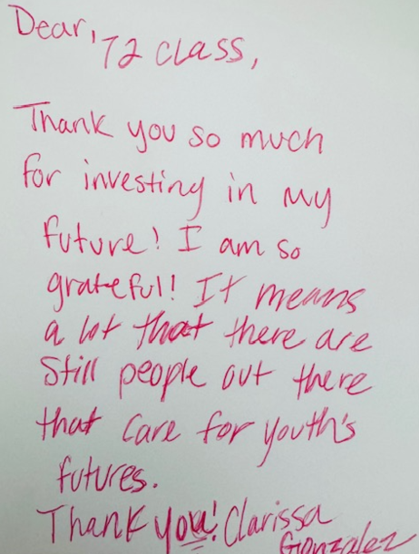 Dear, 72 class,
Thank you so much
for investing in my
future! I am so
grateful! It means
a lot that there are
still people out there
that care for youth's
futures.
Thank you! Clarissa
Gonzalez